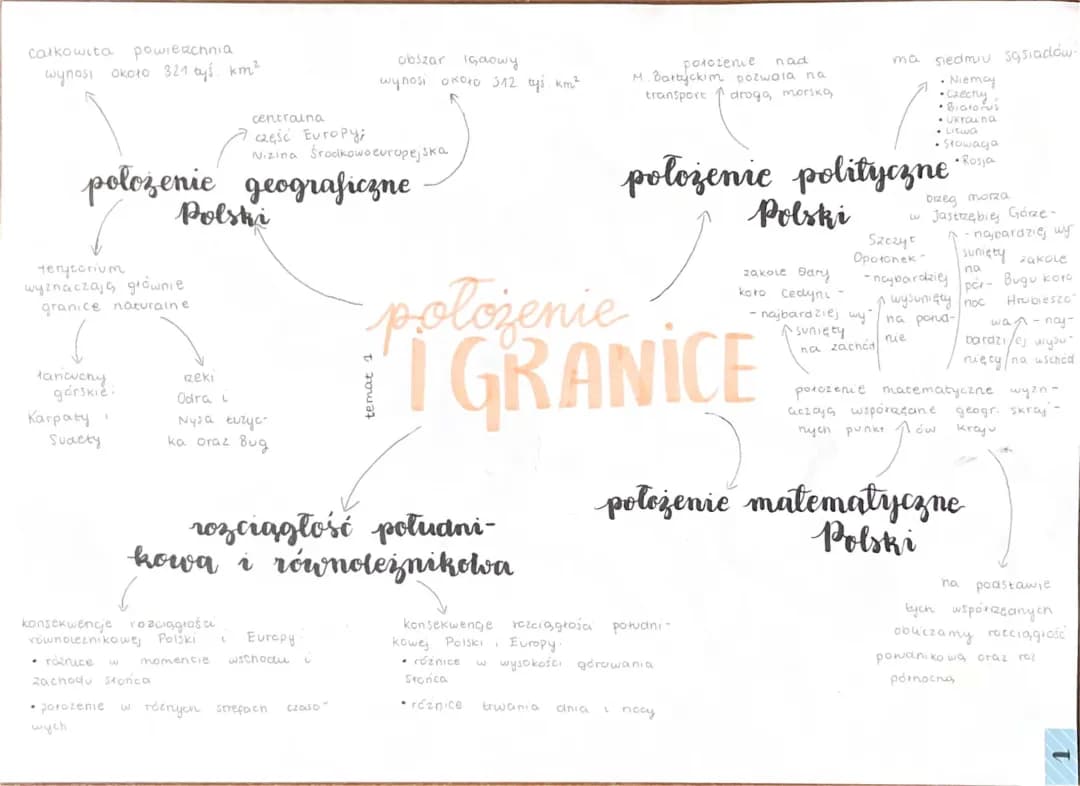 całkowita powierzchnia
wynosi około 321 tyś. km²
obszar lądowy
wynosi około 312 tyś km²
centralna
część Europy;
Nizina Środkowoeuropejska
położenie geograficzne
Polski
terytorium
wyznaczają głównie
granice naturalne
łańcuchy
górskie:
Karpaty i
Sudety
rzeki
Odra i
Nysa Łużyc-
ka oraz Bug
położenie nad
M. Bałtyckim pozwala na
transport drogą morską
ma siedmiu sąsiadów
• Niemcy
• Czechy
• Białoruś
• Ukraina
• Litwa
• Słowacja
• Rosja
położenie polityczne
Polski
temat 1
położenie
I GRANICE
zakole Odry
koło Cedyni -
- najbardziej wy-
sunięty
na zachód
Szczyt
Opołonek -
- najbardziej
wysunięty
na połud-
nie
brzeg morza
w Jastrzębiej Górze -
- najbardziej wy
sunięty
na
pół-
noc
zakole
Bugu koło
Hrubieszo
wa - naj-
bardziej wysu-
nięty na wschód
położenie matematyczne wyzn-
aczają współrzędne geogr. skraj-
nych punktów kraju
położenie matematyczne
Polski
na podstawie
tych współrzędnych
obliczamy rozciągłość
południkową oraz roz
północną
rozciągłość południ-
kowa i równoleżnikowa
konsekwencje rozciągłości
równoleżnikowej Polski i Europy:
• różnice w momencie wschodu i
zachodu Słońca
• położenie w różnych strefach czaso-
wych
konsekwencje rozciągłości południ-
kowej Polski i Europy:
• różnice w wysokości górowania
Słońca
• różnice trwania dnia i nocy
1